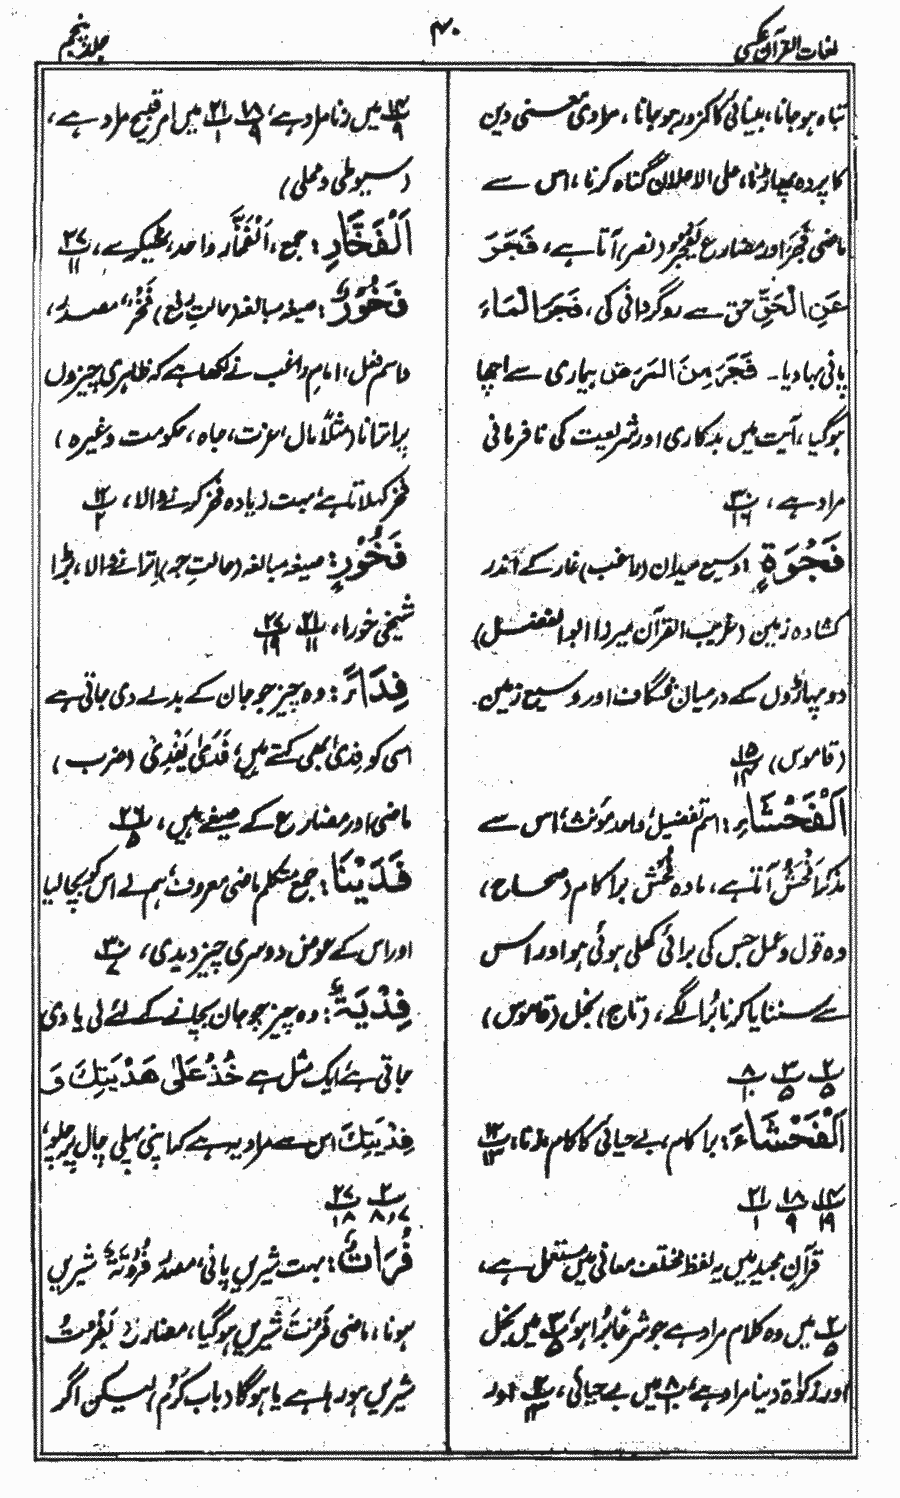 لغات القرآن عکسی
۴۰
جلد پنجم
تباہ ہوجانا، بینائی کا کمزور ہوجانا، مرادی معنی دین
کا پردہ پھاڑنا، علی الاعلان گناہ کرنا، اس سے
ماضی فَجَرَ اور مضارع یَفْجُرُ (نصر) آتا ہے، فَجَرَ
عَنِ الْحَقِّ حق سے روگردانی کی، فَجَرَ الْمَاءَ
پانی بہا دیا۔ فَجَرَ مِنَ الْمَرَضِ بیماری سے اچھا
ہوگیا، آیت میں بدکاری اور شریعت کی نافرمانی
مراد ہے، ۳۰/۱۶
فَجْوَةٍ: وسیع میدان (راغب) غار کے اندر
کشادہ زمین (غریب القرآن میرزا ابوالفضل)
دو پہاڑوں کے درمیان شگاف اور وسیع زمین
(قاموس) ۱۵/۱۴
اَلْفَحْشَاءِ: اسم تفضیل، واحد مؤنث، اس سے
مذکر اَفْحَشُ آتا ہے، مادہ فُحْش برا کام (صحاح)،
وہ قول و عمل جس کی برائی کھلی ہوئی ہو اور اس
سے سننا یا کرنا بُرا لگے، (تاج) بخل (قاموس)،
۲/۵ ۳/۵ ۸/۱۰
اَلْفَحْشَاءَ: برا کام، بے حیائی کا کام، زنا: ۱۲/۱۳
۱۴/۱۹ ۱۸/۹ ۲۱/۱
قرآن مجید میں یہ لفظ مختلف معانی میں مستعمل ہے،
۲/۵ میں وہ کلام مراد ہے جو شرعاً بُرا ہو، ۳/۵ میں بخل
اور زکوٰة نہ دینا مراد ہے، ۸/۱۰ میں بے حیائی، ۱۲/۱۳ اور
۱۴/۹ میں زنا مراد ہے، ۱۸/۹ ۲۱/۱ میں امر قبیح مراد ہے،
(سیوطی و محلی)
اَلْفَخَّارِ: جمع، اَلْفَخَّار واحد، ٹھیکرے، ۲۷/۱۱
فَخُوْرٌ: صیغہ مبالغہ (حالتِ رفع) فَخْرٌ، مصدر،
و اسم فعل، امام راغب نے لکھا ہے کہ ظاہری چیزوں
پر اترانا (مثلاً مال، عزت، جاہ، حکومت وغیرہ)
فخر کہلاتا ہے، بہت زیادہ فخر کرنے والا، ۱۲/۲
فَخُوْرٍ: صیغہ مبالغہ (حالتِ جر) اِترانے والا، بڑا
شیخی خورا، ۲۱/۱۱ ۲۷/۱۹
فِدَاءً: وہ چیز جو جان کے بدلے دی جاتی ہے
اسی کو فِدیٰ بھی کہتے ہیں، فَدَیٰ یَفْدِیْ (ضرب)
ماضی اور مضارع کے صیغے ہیں، ۲۶/۵
فَدَيْنَا: جمع متکلم ماضی معروف، ہم نے اس کو بچا لیا
اور اس کے عوض دوسری چیز دیدی، ۲۳/۷
فِدْيَةٌ: وہ چیز جو جان بچانے کے لئے لی یا دی
جاتی ہے ایک مثل ہے خُذْ عَلٰی هَدْيَتِكَ وَ
فِدْيَتِكَ اس سے مراد یہ ہے کہ اپنی پہلی چال پر چلو،
۲/۷،۸ ۲۷/۱۸
فُرَاتٌ: بہت شیریں پانی، مصدر فُرُوْتَةٌ شیریں
ہونا، ماضی فَرُتَ شیریں ہوگیا، مضارع یَفْرُتُ
شیریں ہو رہا ہے یا ہوگا (باب کَرُمَ) لیکن اگر